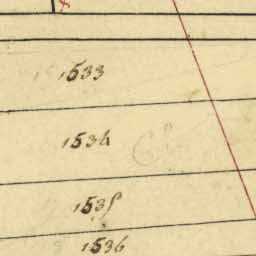 1533
1534
1535
1536